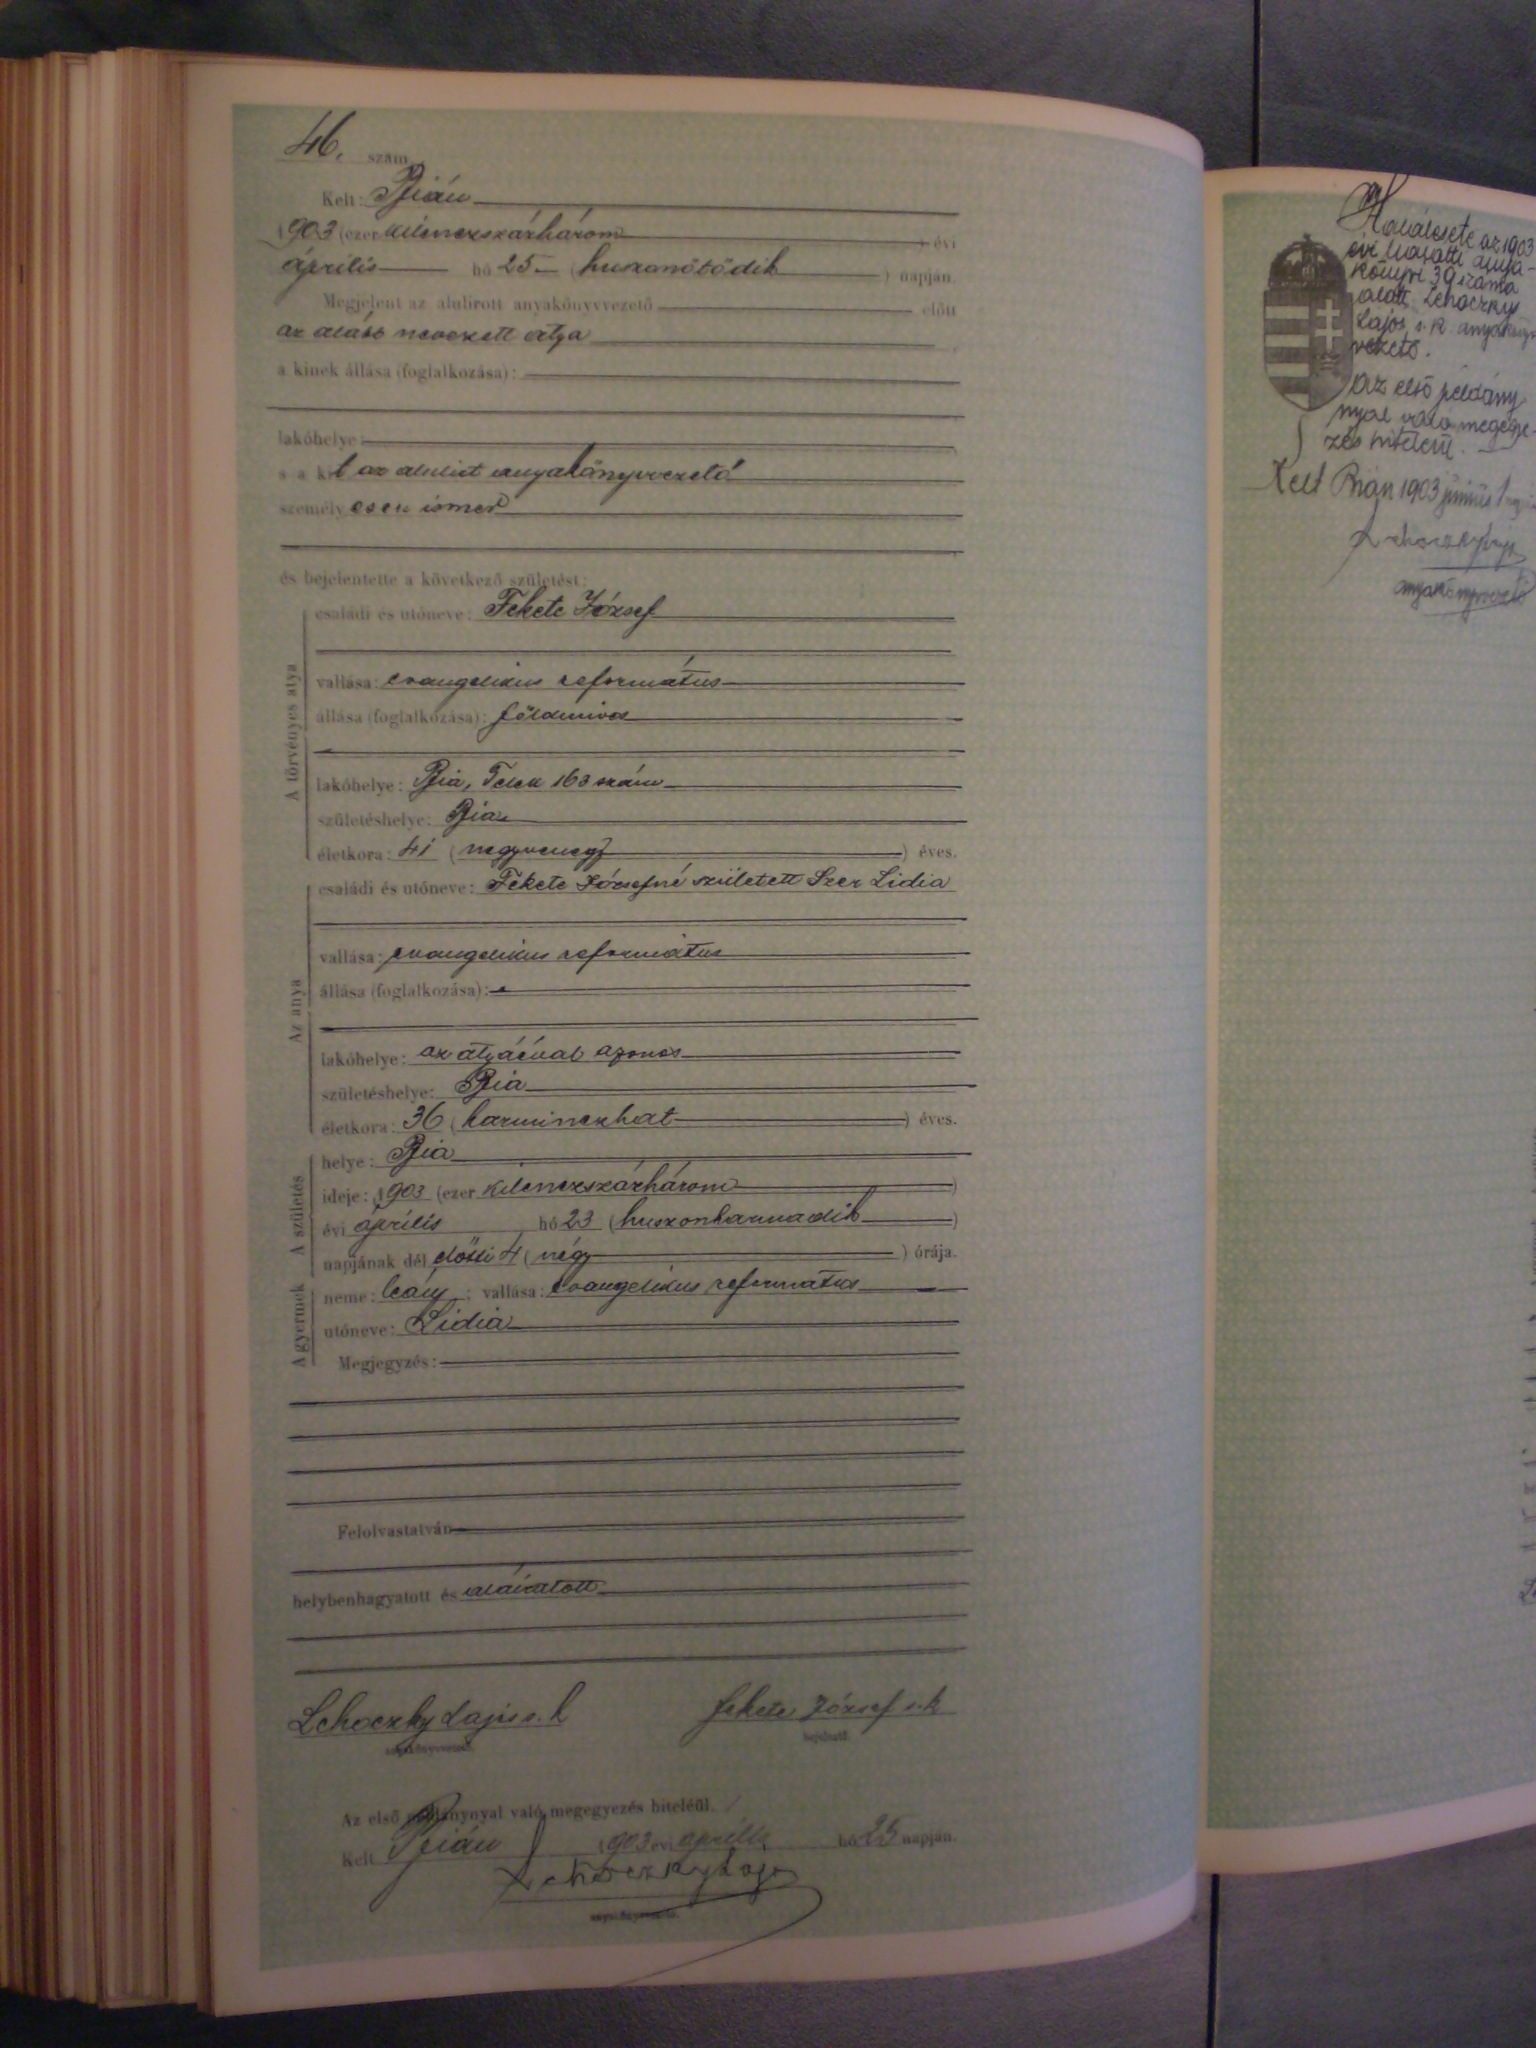 46. szám
Kelt: Bián
1903 (ezer kilenczszázhárom ) évi
április hó 25 (huszonötödik ) napján.
Megjelent az alulirott anyakönyvvezető előtt
az alább nevezett atya
a kinek állása (foglalkozása):
lakóhelye:
s a kit az alulirt anyakönyvvezető
személyesen ismer
és bejelentette a következő születést:
A törvényes atya
családi és utóneve: Fekete József
vallása: evangelikus református
állása (foglalkozása): földmives
lakóhelye: Bia, Telek 163 szám
születéshelye: Bia
életkora: 41 (negyvenegy ) éves.
Az anya
családi és utóneve: Fekete Józsefné született Szer Lidia
vallása: evangelikus református
állása (foglalkozása):
lakóhelye: az atyáéval azonos
születéshelye: Bia
életkora: 36 (harminczhat ) éves.
A születés
helye: Bia
ideje: 1903 (ezer kilenczszázhárom )
évi április hó 23 (huszonharmadik )
napjának dél előtti 4 (négy ) órája.
A gyermek
neme: leány; vallása: evangelikus református
utóneve: Lidia
Megjegyzés:
Felolvastatván
helybenhagyatott és aláiratott
Lehoczky Lajos s. k Fekete József s. k
anyakönyvvezető. bejelentő.
Az első példánynyal való megegyezés hiteléül.
Kelt Bián 1903 évi április hó 25 napján.
Lehoczky Lajos
anyakönyvvezető.
Halálesete az 1903
évi halotti anya-
könyvi 39 száma
alatt. Lehoczky
Lajos s. k. anyakönyv
vezető.
Az első példány
nyal való megegye-
zés hiteléül.
Kelt Bián 1903 június 1
Lehoczky Lajos
anyakönyvvezető